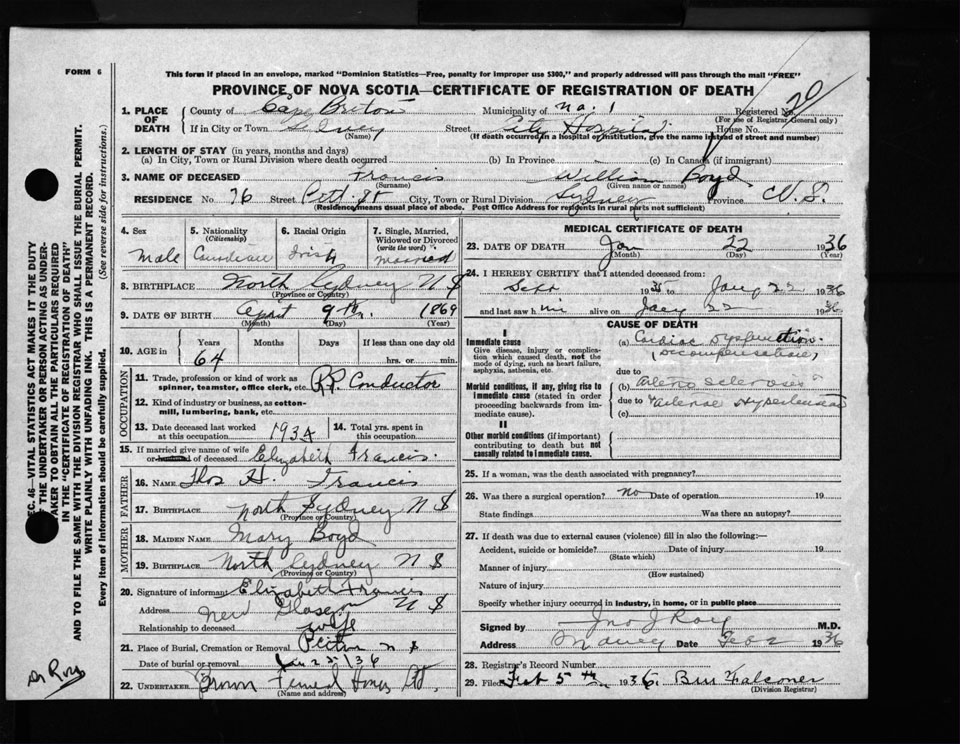 FORM 6
This form if placed in an envelope, marked "Dominion Statistics—Free, penalty for improper use $300," and properly addressed will pass through the mail "FREE"
PROVINCE OF NOVA SCOTIA—CERTIFICATE OF REGISTRATION OF DEATH
1. PLACE OF DEATH County of Cape Breton Municipality of No. 1 Registered No. 20
(For use of Registrar General only)
If in City or Town Sydney Street City Hospital House No.
(Name) (If death occurred in a hospital or institution, give the name instead of street and number)
2. LENGTH OF STAY (in years, months and days)
(a) In City, Town or Rural Division where death occurred (b) In Province (c) In Canada (if immigrant)
3. NAME OF DECEASED Francis William Boyd
(Surname) (Given name or names)
RESIDENCE No 76 Street Pitt St City, Town or Rural Division Sydney Province N. S.
(Residence means usual place of abode. Post Office Address for residents in rural parts not sufficient)
4. Sex Male
5. Nationality (Citizenship) Canadian
6. Racial Origin Irish
7. Single, Married, Widowed or Divorced (write the word) married
8. BIRTHPLACE North Sydney N S
(Province or Country)
9. DATE OF BIRTH April 9th 1869
(Month) (Day) (Year)
10. AGE in Years Months Days If less than one day
64 hrs. or min.
OCCUPATION
11. Trade, profession or kind of work as spinner, teamster, office clerk, etc. RR. Conductor
12. Kind of industry or business, as cotton-mill, lumbering, bank, etc.
13. Date deceased last worked at this occupation 1934
14. Total yrs. spent in this occupation
15. If married give name of wife or husband of deceased Elizabeth Francis.
FATHER
16. NAME Thos H. Francis
17. BIRTHPLACE North Sydney N S
(Province or Country)
MOTHER
18. MAIDEN NAME Mary Boyd
19. BIRTHPLACE North Sydney N S
(Province or Country)
20. Signature of informant Elizabeth Francis
Address New Glasgow N S
Relationship to deceased wife
21. Place of Burial, Cremation or Removal N S
Date of burial or removal Jan 25/36
22. UNDERTAKER Brown Funeral Home
(Name and address)
MEDICAL CERTIFICATE OF DEATH
23. DATE OF DEATH Jan 22 1936
(Month) (Day) (Year)
24. I HEREBY CERTIFY that I attended deceased from:
Sept 1935 to Jany 22 1936
and last saw him alive on Jany 22 1936
CAUSE OF DEATH
I
Immediate cause
Give disease, injury or complication which caused death, not the mode of dying, such as heart failure, asphyxia, asthenia, etc.
(a) Cardiac
(Decompensation)
due to
Morbid conditions, if any, giving rise to immediate cause (stated in order proceeding backwards from immediate cause).
(b) Arterio sclerosis
due to
(c)
II
Other morbid conditions (if important) contributing to death but not causally related to immediate cause.
25. If a woman, was the death associated with pregnancy?
26. Was there a surgical operation? no Date of operation 19
State findings Was there an autopsy?
27. If death was due to external causes (violence) fill in also the following:—
Accident, suicide or homicide? Date of injury 19
(State which)
Manner of injury
(How sustained)
Nature of injury
Specify whether injury occurred in industry, in home, or in public place
Signed by Jno J Roy M.D.
Address Date Feb 2 1936
28. Registrar's Record Number
29. Filed Feb 5th 1936. Falconer
(Division Registrar)
SEC. 46—VITAL STATISTICS ACTS MAKES IT THE DUTY
OF THE UNDERTAKER OR PERSON ACTING AS UNDERTAKER TO OBTAIN ALL THE PARTICULARS REQUIRED
IN THE "CERTIFICATE OF REGISTRATION OF DEATH"
AND TO FILE THE SAME WITH THE DIVISION REGISTRAR WHO SHALL ISSUE THE BURIAL PERMIT.
WRITE PLAINLY WITH UNFADING INK. THIS IS A PERMANENT RECORD.
Every item of Information should be carefully supplied. (See reverse side for instructions.)
Dr Roy